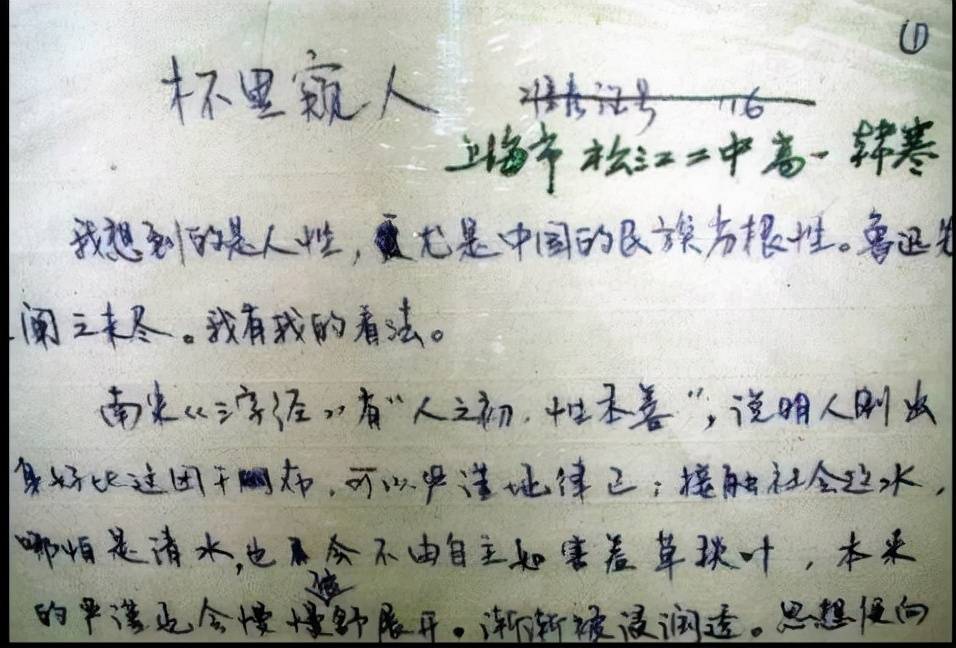 ①
杯里窥人 准考证号 16
上海市松江二中高一 韩寒
我想到的是人性，尤是中国的民族劣根性。鲁迅先
阐之未尽。我有我的看法。
南宋《三字经》有“人之初，性本善”，说明人刚出
身好比这团干布，可以严谨地律己；接触社会这水，
哪怕是清水，也会不由自主如害羞草掞叶，本来
的严谨也会慢慢地舒展开。渐渐被浸润透。思想便向